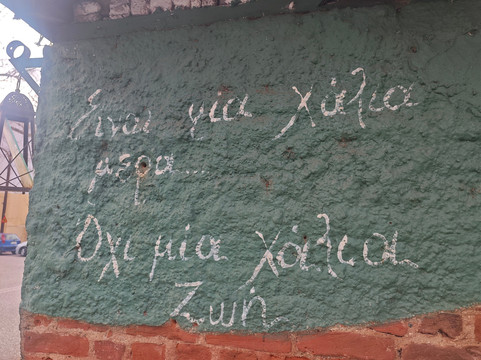 Είναι μία χάλια
μέρα...
Όχι μία χάλια
Ζωή